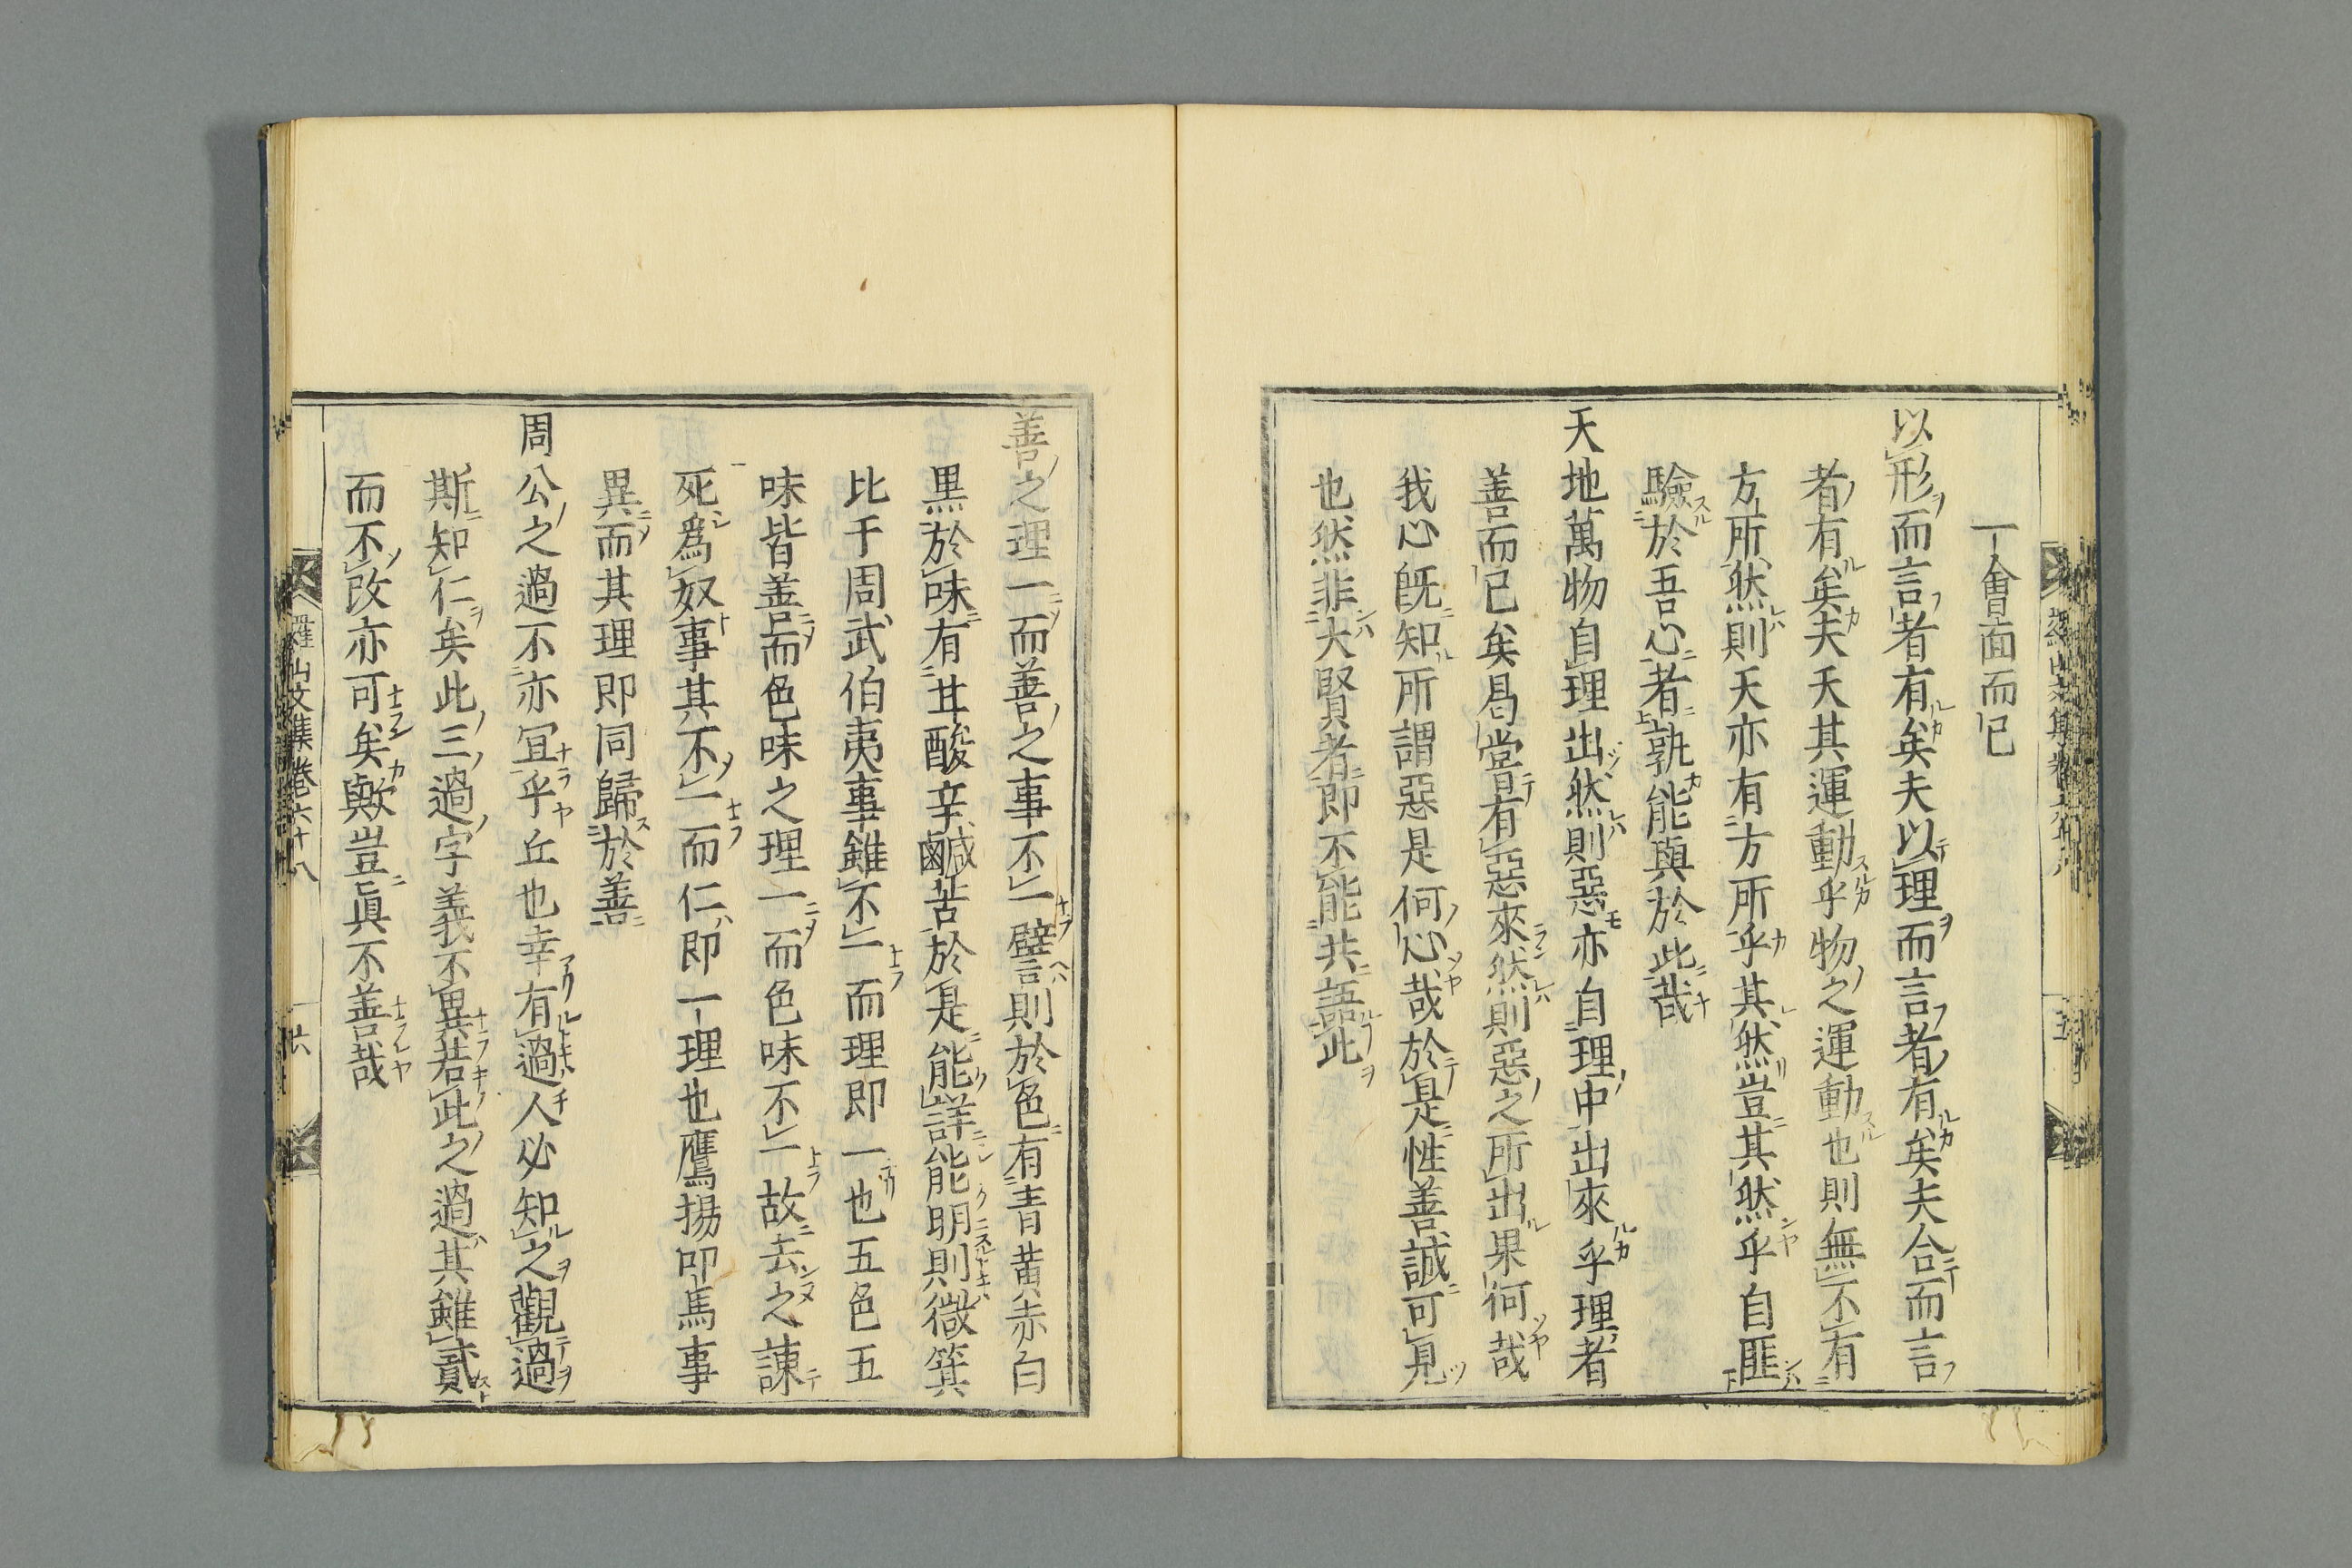 一會面而已
以形而言者有矣夫以理而言者有矣夫合而言
者有矣夫天其運動乎物之運動也則無不有
方所然則天亦有方所乎其然豈其然乎自匪
驗於吾心者孰能與於此哉
天地萬物自理出然則惡亦自理中出來乎理者
善而已矣曷嘗有惡來然則惡之所出果何哉
我心既知所謂惡是何心哉於是性善誠可見
也然非大賢者即不能共語此
善之理一而善之事不一譬則於色有青黄赤白
黒於味有甘酸辛鹹苦於是能詳能明則微箕
比干周武伯夷事雖不一而理即一也五色五
味皆善而色味之理一而色味不一故去之諫
死爲奴事其不一而仁即一理也鷹揚叩馬事
異而其理即同歸於善
周公之過不亦冝乎丘也幸有過人必知之觀過
斯知仁矣此三過字義不異若此之過其雖貳
而不改亦可矣歟豈眞不善哉
羅山文集卷六十八
六